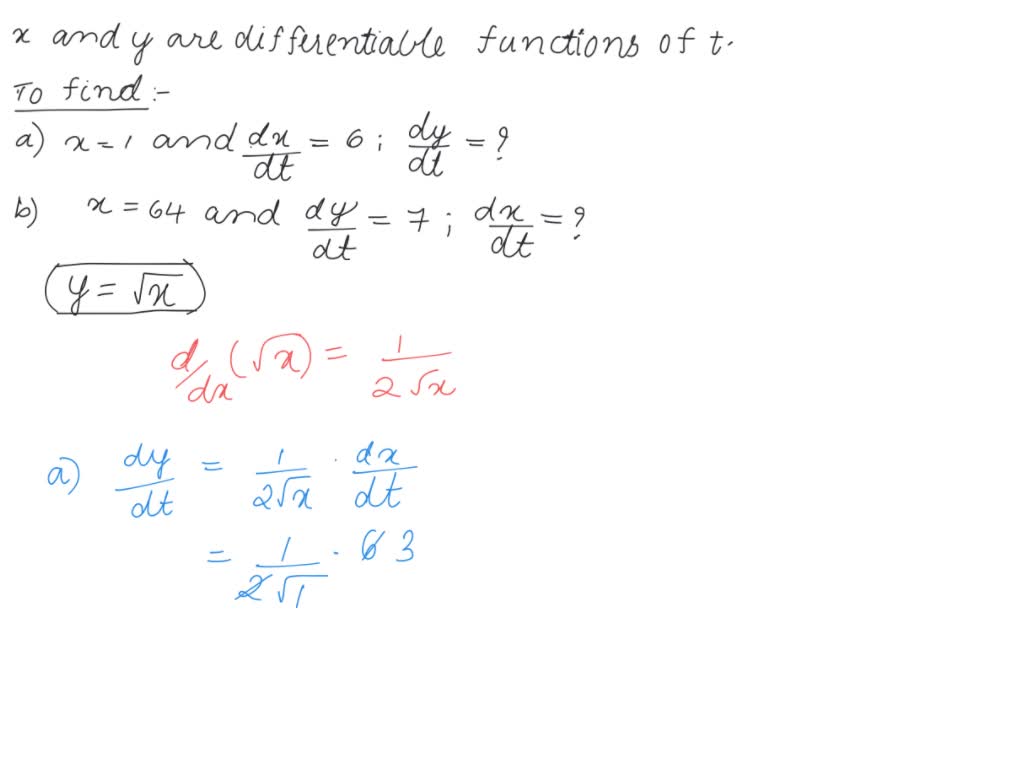 x and y are differentiable functions of t.
To find :-
a) x = 1 and dx/dt = 6 ; dy/dt = ?
b) x = 64 and dy/dt = 7 ; dx/dt = ?
y = √x
d/dx (√x) = 1/2√x
a) dy/dt = 1/2√x · dx/dt
= 1/2√1 · 6 3